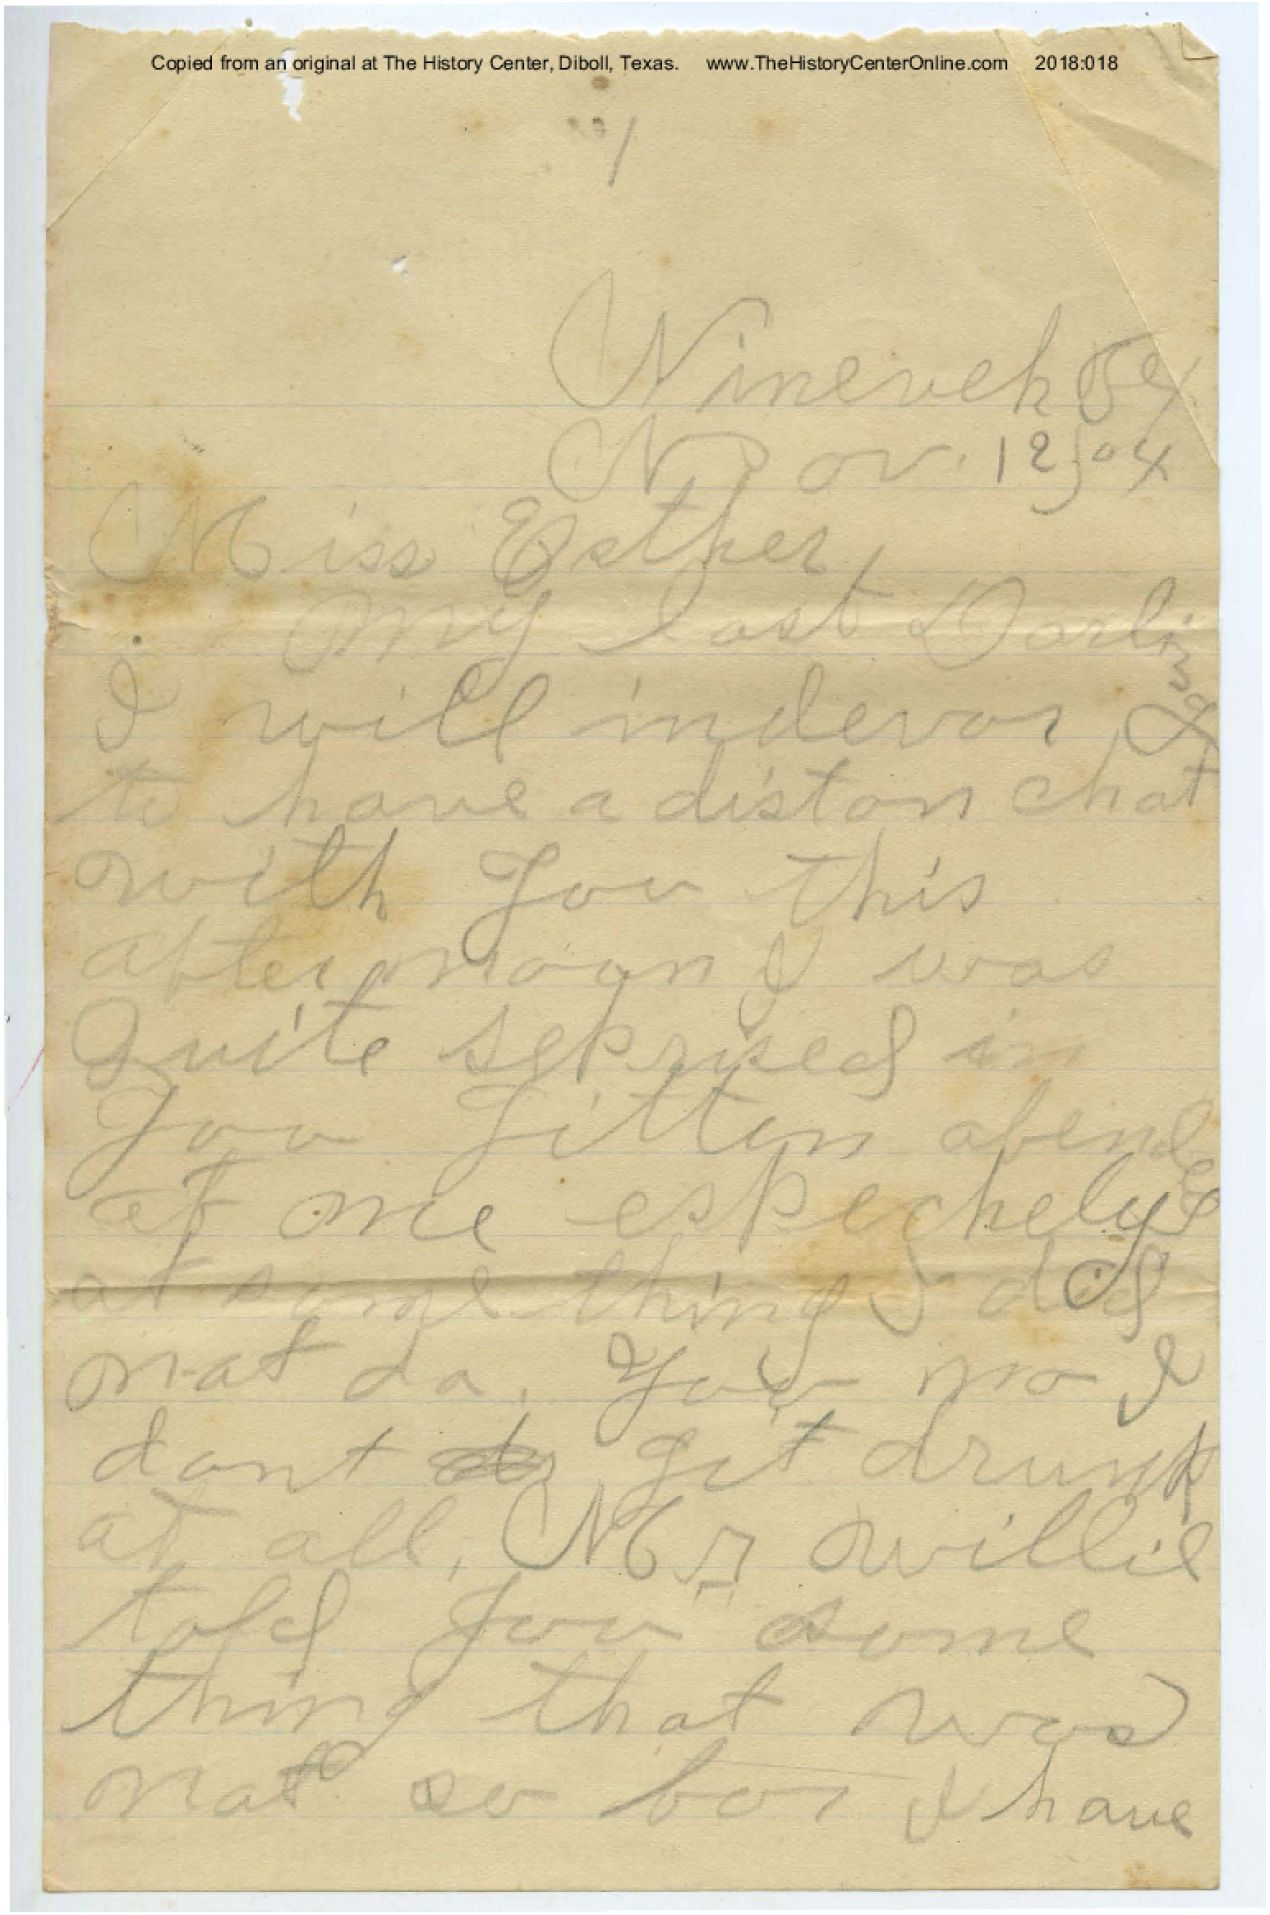 Copied from an original at The History Center, Diboll, Texas. www.TheHistoryCenterOnline.com 2018:018
1
Nineveh Tex
Nov. 12, 04
Miss Esther,
My last Darling
I will indevor
to have a diston chat
with You this
afternoon I was
Quite seprised in
You Gitton afended
at me espechely
at something I did
not do. You no I
dont git drunk
at all, Mr Willie
told You some
thing that was
not so for I have